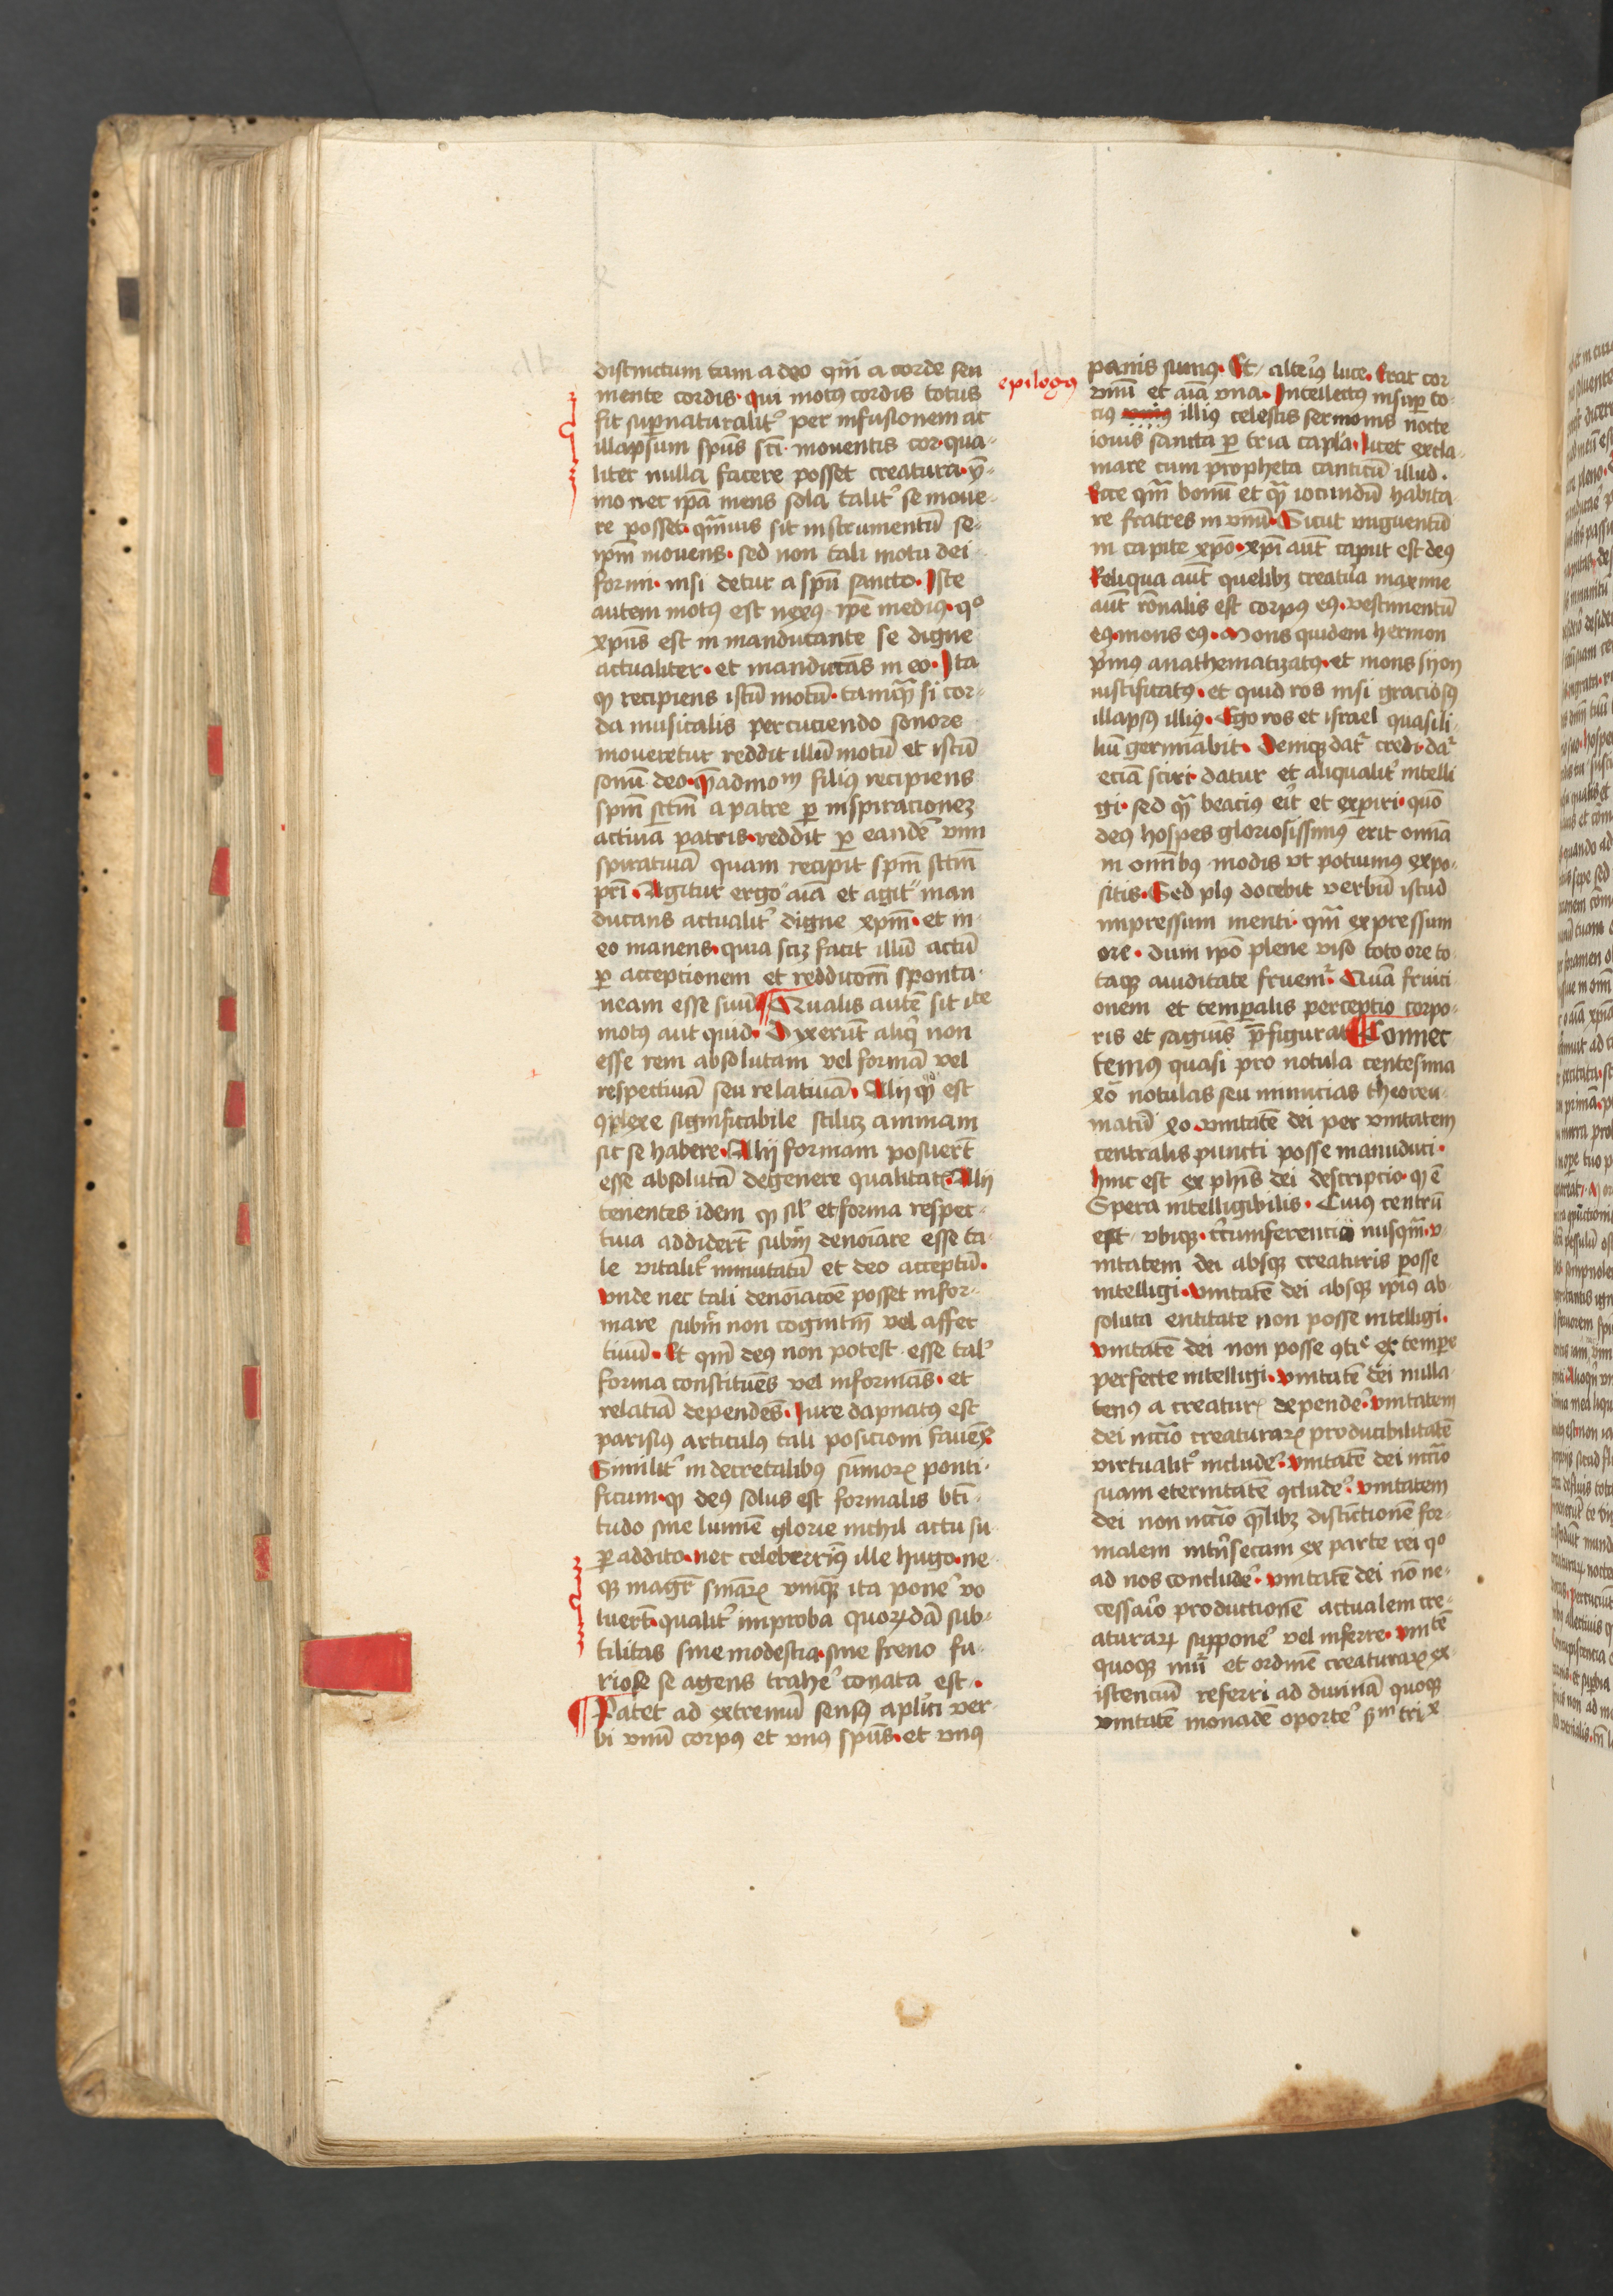 distinctum tam a deo qm̄ a corde seu
mente cordis · qui motꝰ cordis totus
fit suꝑnaturalitˀ per infusionem ac
illapsum spūs scī · mouentis cor · qua-
liter nulla facere posset creatura · ỹ-
mo nec ip̄a mens sola talitˀ se moue-
re posset · qm̄uis sit instrumentū se-
ip̄m mouens · sed non tali motu dei
formi · nisi detur a spū sancto · Iste
autem motꝰ est nexꝰ ip̄e mediꝰ · qº
xp̄us est in manducante se digne
actualiter · et manducās in eo · Ita
ꝙ recipiens istū motū · tamqᷓ si cor-
da musicalis percuciendo sonore
moueretur reddit illū motū et istū
sonū deo · q̄admoᵐ filiꝰ recipiens
spm̄ sctm̄ a patre ꝑ inspiracioneꝫ
actiuā patris · reddit ꝑ eandē vim
spiratiuā quam recipit spm̄ sctm̄
pr̄i · Agitur ergo aīa et agit man
ducans actualitˀ digne xp̄m · et in
eo manens · quia sciꝫ facit illū actū
ꝑ acceptionem et redditom̄ sponta-
neam esse suū ¶ Qualis autē sit iste
motꝰ aut quid · Dixerūt aliqͥ non
esse rem absolutam vel formā vel
respectiuā seu relatiuā · Alij qᷓ est
ꝯplexe significabile scilicꝫ animam
sic se habere · Alij formam posuerūt
esse absolutā de genere qualitatꝭ Alij
tenentes idem ꝙ silˀ et forma respec-
tiua addiderūt subm̄ denoīare esse ta-
le vitalitˀ inmutatū et deo acceptū ·
vnde nec tali denoīacōe posset infor-
mare subm̄ non cognitm̄ vel affec
tiuū · Et qm̄ deꝰ non potest esse talˀ
forma constituēs vel informās · et
relatiā dependēs · Iure dapnatꝰ est
parisiꝰ articulꝰ tali posicioni fauēs
Similitˀ in decretalibꝰ sūmoꝝ ponti-
ficum · ꝙ deꝰ solus est formalis btī-
tudo sine lumīe glorie nichil actu su
ꝑ addito · nec celeberrimꝰ ille hugo · ne
qꝫ magr̄ sniāꝝ vmqᷓ ita ponēˀ vo
luerūt · qualitˀ improba quoꝝdā sub-
tilitas sine modestia · sine freno fu-
riose se agens trahēˀ conata est ·
¶ Patet ad extremū sensꝰ aplīci ver-
bi vnū corpꝰ et vnꝰ spūs · et vnꝰ
epilogꝰ
panis sumꝰ · Et altēiꝰ luce · Erat cor
vnū et aīa vna · Intellectꝰ insuꝑ to-
ciꝰ illiꝰ celestis sermonis nocte
iouis sancta ꝑ tria capla · licet excla-
mare cum propheta canticū illud ·
Ecce qm̄ bonū et qᷓ iocundū habita-
re fratres in vnū · Sicut vnguentū
in capite xp̄o · xp̄i aut̄ caput est deꝰ
Reliqua aut̄ quelibꝫ creatura maxime
aut̄ rōnalis est corpꝰ eꝰ · vestimentū
eꝰ · mons eꝰ · Mons quidem hermon
primꝰ anathematizatꝰ · et mons sÿon
iustificatꝰ · et quid ros nisi graciosꝰ
illapsꝰ illiꝰ · Ego ros et israel quasi li-
liū germīabit · Deniqꝫ datˀ credi · datˀ
eciā sciri · datur et aliqualitˀ intelli
gi · sed qᷓ beaciꝰ eīt et exꝑiri · quō
deꝰ hospes gloriosissimꝰ erit omīa
in omībꝰ modis vt potuimꝰ expo-
sitis · Sed plꝰ docebit verbū istud
impressum menti · qm̄ expressum
ore · dum ip̄o plene viso toto ore to
taqꝫ auiditate fruemˀ · Quā fruici-
onem et temꝑalis perceptio corpo-
ris et sāguīs p̄figurat ¶ Connec
temꝰ quasi pro notula centesima
xo notulas seu minucias theoreu-
matū xo · vnitatē dei per vnitatem
centralis puncti posse manuduci ·
hinc est ex phīs dei descripcio · q̄ ē
Spera intelligibilis · Cuius centrū
est vbiqꝫ · cʳcumferencia nusqᷓ · v-
nitatem dei absqꝫ creaturis posse
intelligi · vnitatē dei absqꝫ ip̄ius ab-
soluta entitate non posse intelligi ·
vnitatē dei non posse ꝯtīᵉ ex temꝑe
perfecte intelligi · vnitatē dei nulla-
tenꝰ a creaturꝭ dependēˀ · vnitatem
dei nccīo creaturaꝝ producibilitatē
virtualitˀ includēˀ · vnitatē dei nccīo
suam eternitatē ꝯcludēˀ · vnitatem
dei non nccīo qᷓlibꝫ distictionē for-
malem intˀnsecam ex parte rei qº
ad nos concludēˀ · vnitatē dei nō ne-
cessaˀio productionē actualem cre-
aturaꝝ supponēˀ vel inferre · vnitᵉ̄
quoqꝫ et ordinē creaturaꝝ ex
istencium referri ad diuinā quoqꝫ
vnitatē monadē oportēˀ